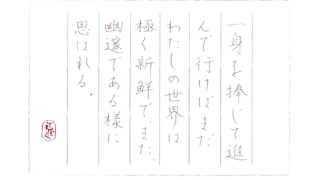 一身を捧じて進
んで行けばまだ
わたしの世界は
極く新鮮で、また、
幽邃である様に
思はれる。